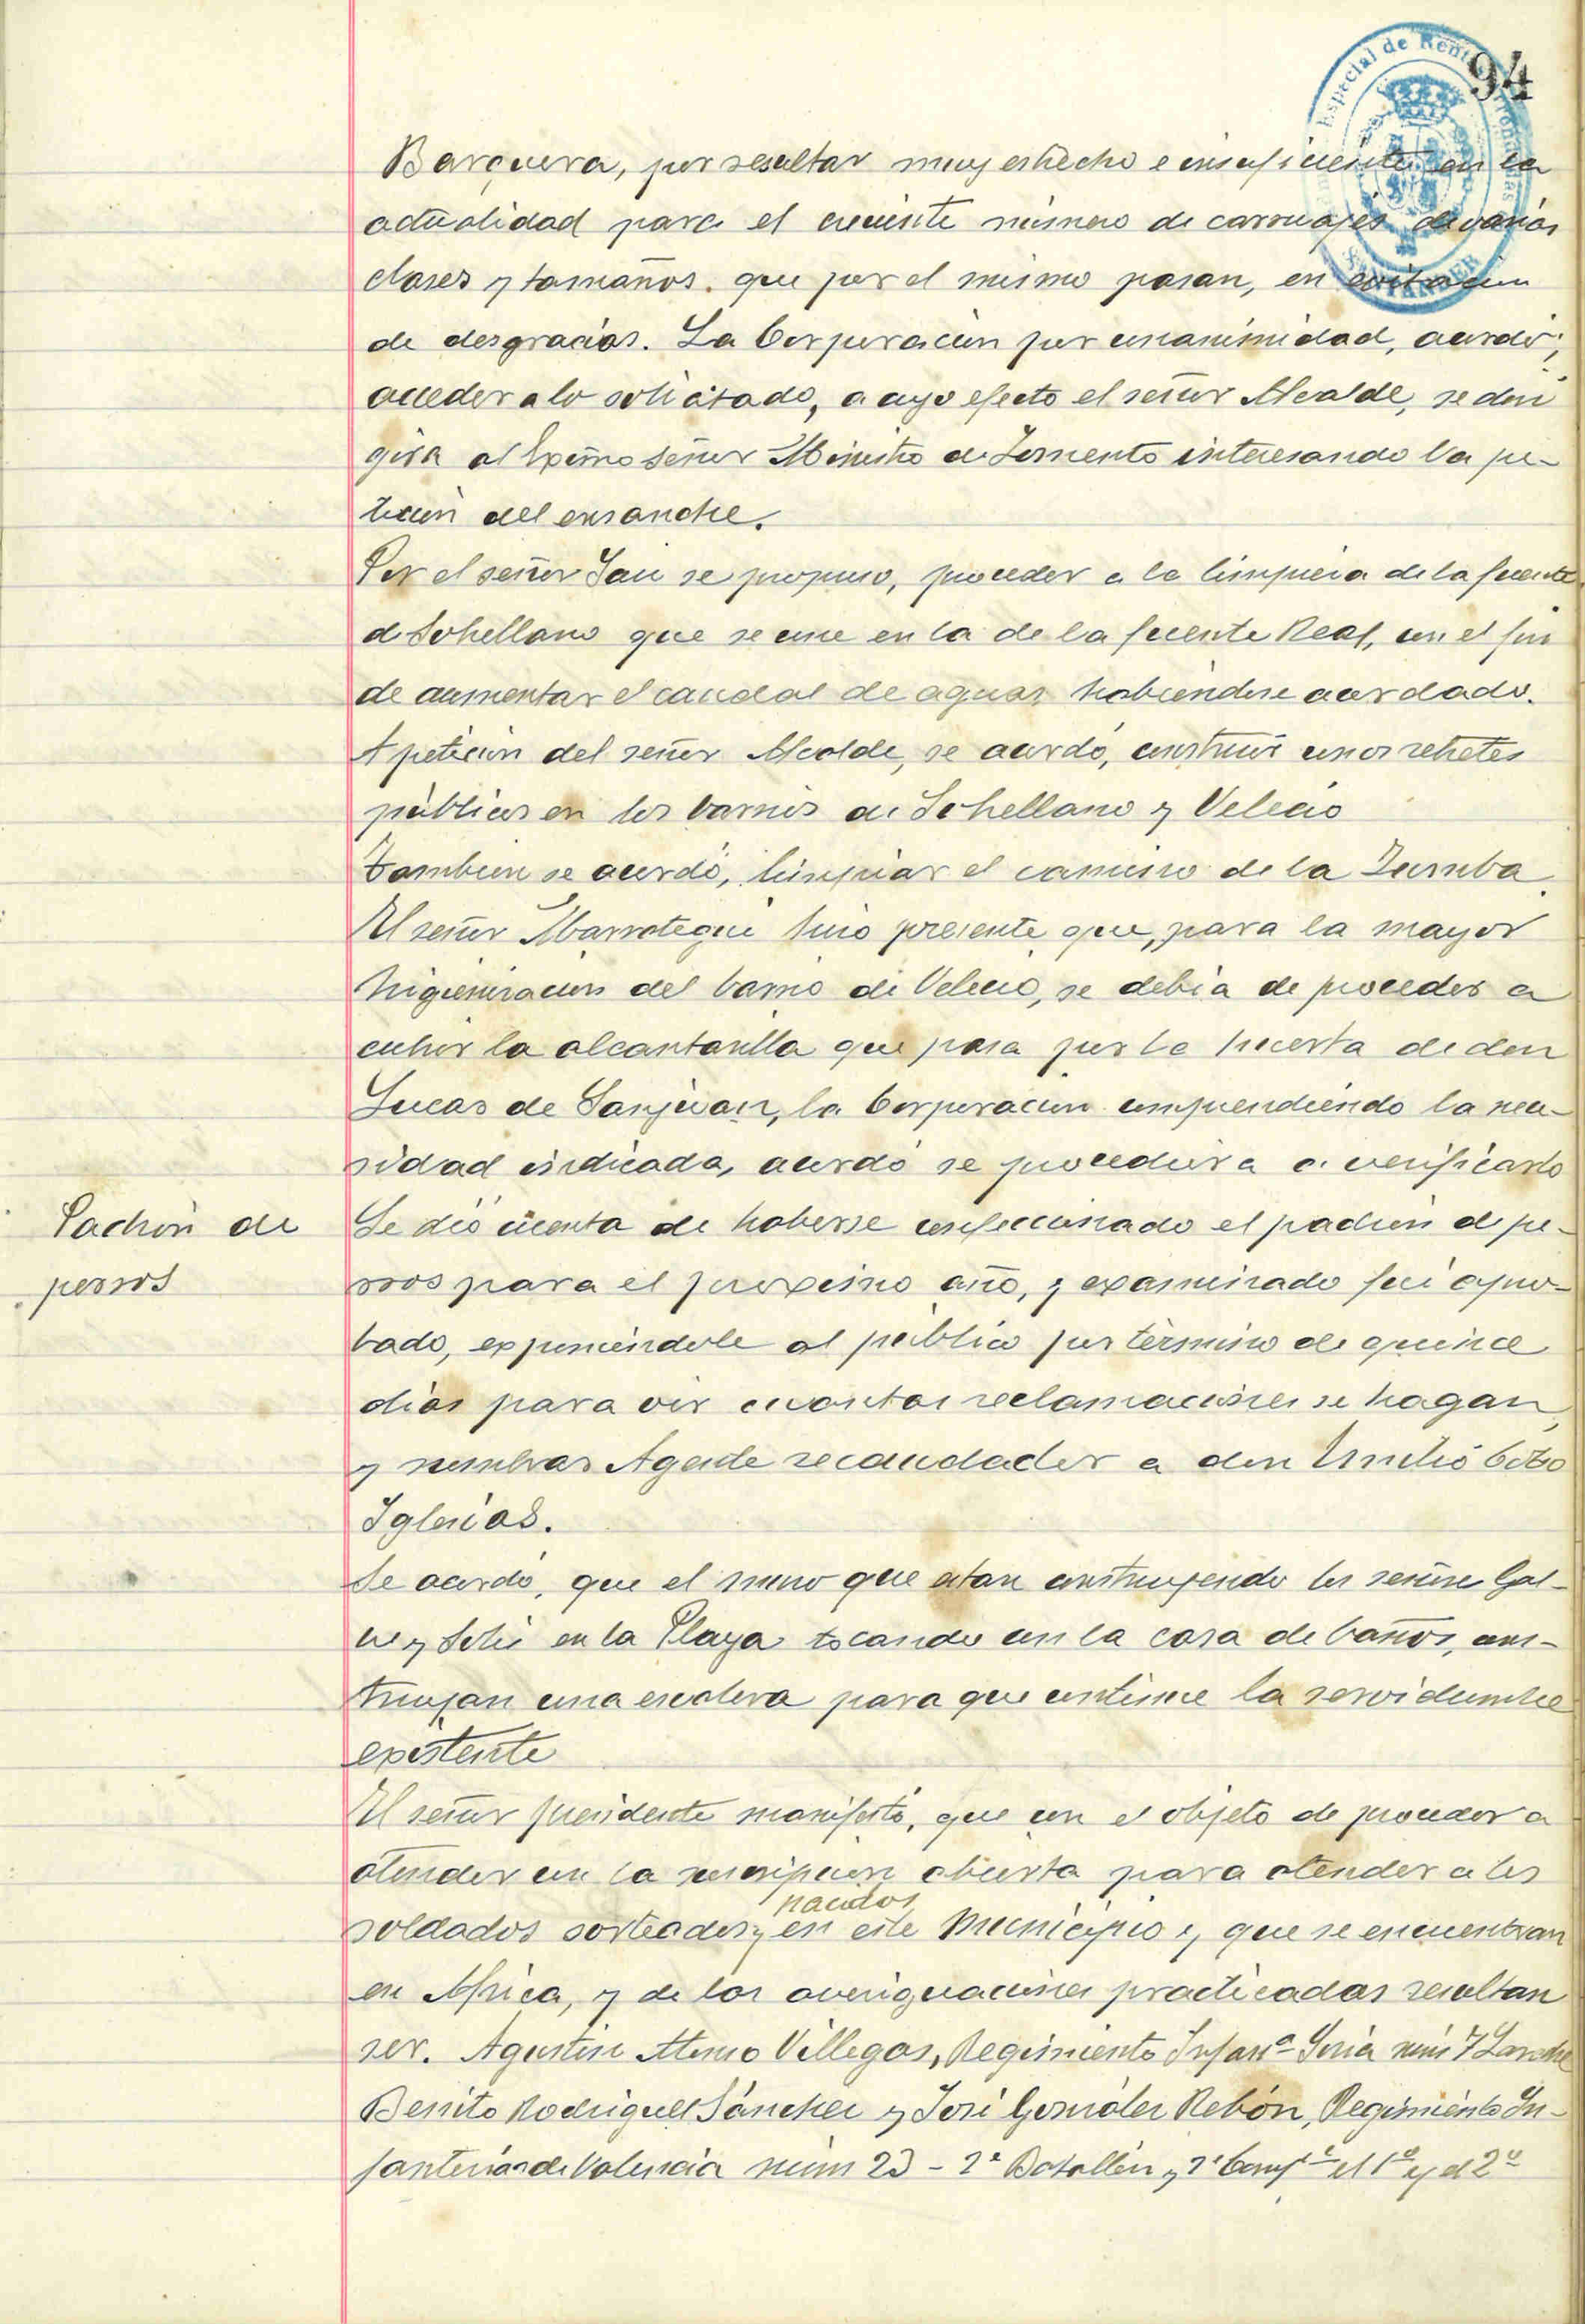 94
Especial de Rentas
SANTANDER
Barquera, por resultar muy estrecho e insuficiente en la
actualidad para el creciente número de carruajes de varias
clases y tamaños que por el mismo pasan, en evitación
de desgracias. La Corporación por unanimidad, acordó,
acceder a lo solicitado, a cuyo efecto el señor Alcalde, se diri
gira al Excmo señor Ministro de Fomento interesando la pe-
ticion del ensanche.
Por el señor se propuso, proceder a la limpieza de la fuente
de Sohellano que se une en la de la fuente Real, con el fin
de aumentar el caudal de aguas habiendose acordado.
A petición del señor Alcalde, se acordó, construir unos retretes
públicos en los barrios de Sohellano y Velecio
Tambien se acordó, limpiar el camino de la Zumba.
El señor Abarrategui hizo presente que, para la mayor
higienizacion del barrio de Velecio, se debia de proceder a
cubrir la alcantarilla que pasa por la huerta de don
Lucas de Sanjuan, la Corporacion comprendiendo la nece-
sidad indicada, acordó se procediera a verificarlo
Padrón de
perros
Se dió cuenta de haberse confeccionado el padrón de pe-
rros para el proximo año, y examinado fué apro-
bado, exponiéndole al público por término de quince
dias para oir cuantas reclamaciones se hagan,
y nombrar Agente recaudador a don Emilio Cobo
Iglesias.
Se acordó, que el muro que estan construyendo los señores Gal-
ve y Solis en la Playa tocando con la casa de baños, cons-
truyan una escalera para que continue la servidumbre
existente
El señor presidente manifestó, que con el objeto de proceder a
atender con la suscripcion abierta para atender a los
soldados sorteados y nacidos en este Municipio y que se encuentran
en Africa, y de las averiguaciones practicadas resultan
ser. Agustin Alonso Villegas, Regimiento Infanª Soria núm 7 Larache
Benito Rodriguez Sánchez y José González Rebón, Regimiento In-
fanteria de Valencia núm 23 - 2º Batallón y 2ª Compª el 1º y el 2º